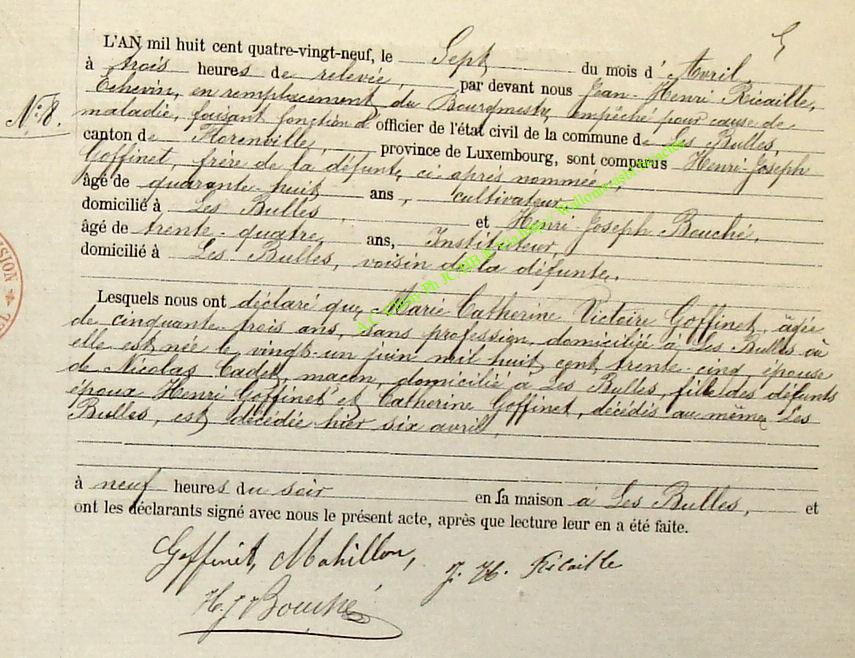 5
L'AN mil huit cent quatre-vingt-neuf, le Sept du mois d'Avril,
à trois heures de relevée, par devant nous Jean-Henri Ricaille,
Echevin, en remplacement du Bourgmestre, empêché pour cause de
N° 8.
maladie, faisant fonction d'officier de l'état civil de la commune de Les Bulles,
canton de Florenville, province de Luxembourg, sont comparus Henri-Joseph
Goffinet, frère de la défunte, ci après nommée,
âgé de quarante-huit ans, cultivateur,
domicilié à Les Bulles, et Henri-Joseph Bouché,
âgé de trente-quatre, ans, Instituteur,
domicilié à Les Bulles, voisin de la défunte.
Lesquels nous ont déclaré que Marie Catherine Victoire Goffinet, âgée
de cinquante-trois ans, sans profession, domiciliée à Les Bulles où
elle est née le vingt-un juin mil huit cent trente-cinq épouse
de Nicolas Cadet, maçon, domicilié à Les Bulles, fille des défunts
époux Henri Goffinet et Catherine Goffinet, décédés au même Les
Bulles, est décédée hier six avril,
à neuf heures du soir en sa maison à Les Bulles, et
ont les déclarants signé avec nous le présent acte, après que lecture leur en a été faite.
Goffinet, Mahillon, J. H. Ricaille
H. J. Bouché